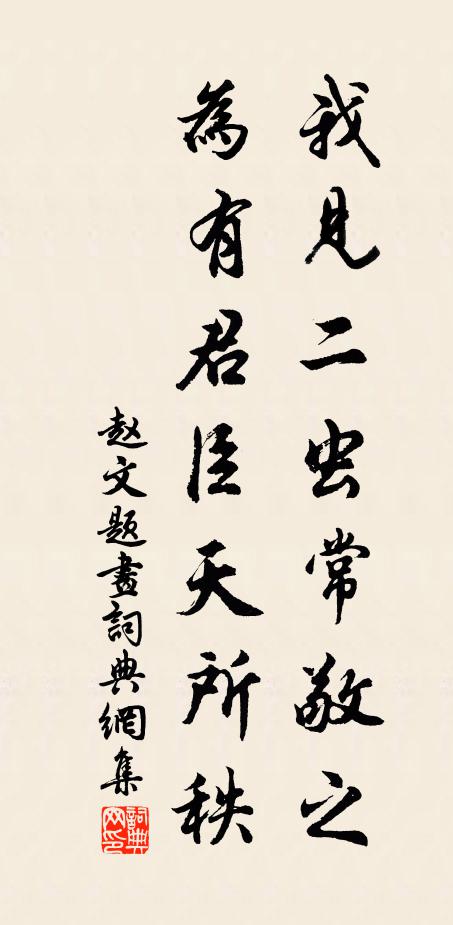 我見二虫常敬之
為有君臣天所秩
赵文題畫詞典網集
詞典网印